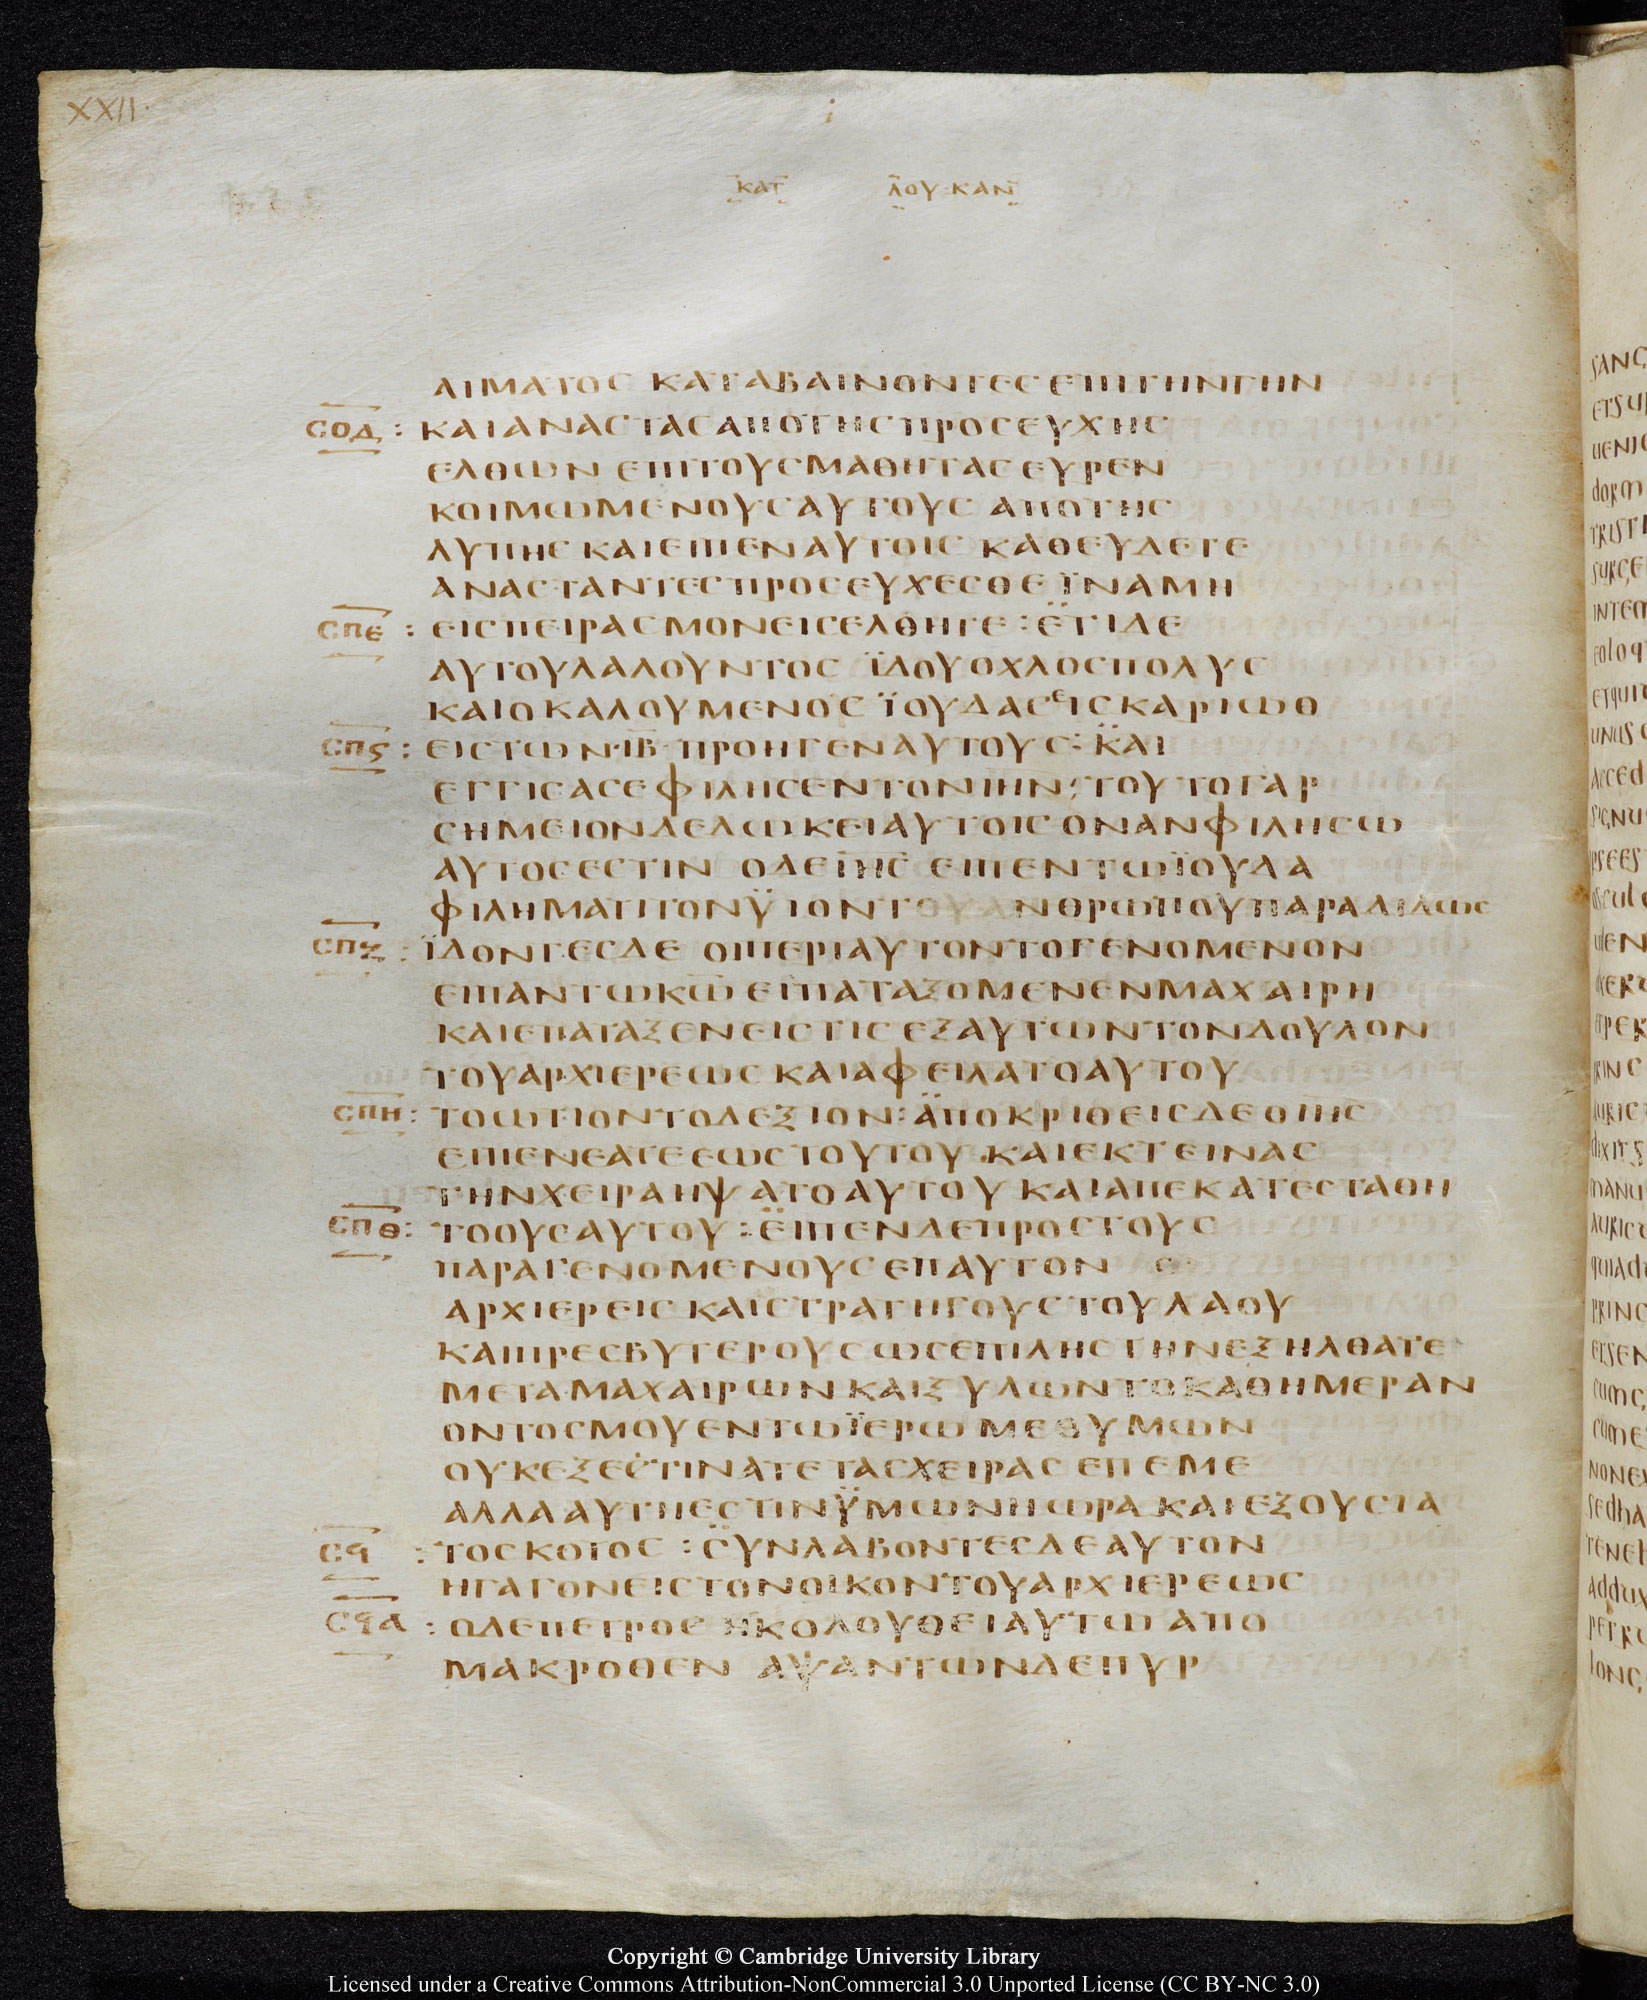 XXII·
ΚΑΤ ΛΟΥΚΑΝ
ΑΙΜΑΤΟΣ ΚΑΤΑΒΑΙΝΟΝΤΕΣ ΕΠΙΤΗΝΓΗΝ
ϹΟΔ : ΚΑΙΑΝΑϹΤΑϹΑΠΟΤΗϹΠΡΟϹΕΥΧΗϹ
ΕΛΘΩΝ ΕΠΙΤΟΥϹΜΑΘΗΤΑϹ ΕΥΡΕΝ
ΚΟΙΜΩΜΕΝΟΥϹΑΥΤΟΥϹ ΑΠΟΤΗϹ
ΛΥΠΗϹ ΚΑΙΕΙΠΕΝΑΥΤΟΙϹ ΚΑΘΕΥΔΕΤΕ
ΑΝΑϹΤΑΝΤΕϹΠΡΟϹΕΥΧΕϹΘΕ ΪΝΑΜΗ
ϹΠΕ : ΕΙϹΠΕΙΡΑϹΜΟΝΕΙϹΕΛΘΗΤΕ : ΕΤΙΔΕ
ΑΥΤΟΥΛΑΛΟΥΝΤΟϹ ΪΔΟΥΟΧΛΟϹΠΟΛΥϹ
ΚΑΙΟΚΑΛΟΥΜΕΝΟϹ ΪΟΥΔΑϹ ΕΙϹΚΑΡΙΩΘ
ϹΠϚ : ΕΙϹΤΩΝ·ΙΒ· ΠΡΟΗΓΕΝΑΥΤΟΥϹ : ΚΑΙ
ΕΓΓΙϹΑϹΕΦΙΛΗϹΕΝΤΟΝΙΗΝ : ΤΟΥΤΟΓΑΡ
ϹΗΜΕΙΟΝΔΕΔΩΚΕΙΑΥΤΟΙϹ ΟΝΑΝΦΙΛΗϹΩ
ΑΥΤΟϹΕϹΤΙΝ ΟΔΕΙΗϹ ΕΙΠΕΝΤΩΪΟΥΔΑ
ΦΙΛΗΜΑΤΙΤΟΝΫΙΟΝΤΟΥΑΝΘΡΩΠΟΥΠΑΡΑΔΙΔΩϹ
ϹΠΖ : ΪΔΟΝΤΕϹΔΕ ΟΙΠΕΡΙΑΥΤΟΝΤΟΓΕΝΟΜΕΝΟΝ
ΕΙΠΑΝΤΩΚΩ ΕΙΠΑΤΑΞΟΜΕΝΕΝΜΑΧΑΙΡΗ
ΚΑΙΕΠΑΤΑΞΕΝΕΙϹΤΙϹ ΕΞΑΥΤΩΝΤΟΝΔΟΥΛΟΝ
ΤΟΥΑΡΧΙΕΡΕΩϹ ΚΑΙΑΦΕΙΛΑΤΟΑΥΤΟΥ
ϹΠΗ : ΤΟΩΤΙΟΝΤΟΔΕΞΙΟΝ : ΑΠΟΚΡΙΘΕΙϹΔΕ ΟΙΗϹ
ΕΙΠΕΝΕΑΤΕΕΩϹΤΟΥΤΟΥ ΚΑΙΕΚΤΕΙΝΑϹ
ΤΗΝΧΕΙΡΑΗΨΑΤΟΑΥΤΟΥ ΚΑΙΑΠΕΚΑΤΕϹΤΑΘΗ
ϹΠΘ : ΤΟΟΥϹΑΥΤΟΥ : ΕΙΠΕΝΔΕΠΡΟϹΤΟΥϹ
ΠΑΡΑΓΕΝΟΜΕΝΟΥϹΕΠΑΥΤΟΝ
ΑΡΧΙΕΡΕΙϹ ΚΑΙϹΤΡΑΤΗΓΟΥϹΤΟΥΛΑΟΥ
ΚΑΙΠΡΕϹΒΥΤΕΡΟΥϹ ΩϹΕΠΙΛΗϹΤΗΝΕΞΗΛΘΑΤΕ
ΜΕΤΑΜΑΧΑΙΡΩΝ ΚΑΙΞΥΛΩΝΤΟΚΑΘΗΜΕΡΑΝ
ΟΝΤΟϹΜΟΥΕΝΤΩΪΕΡΩ ΜΕΘΥΜΩΝ
ΟΥΚΕΞΕϹΤΙΝΑΤΕΤΑϹΧΕΙΡΑϹ ΕΠΕΜΕ
ΑΛΛΑΑΥΤΗΕϹΤΙΝΫΜΩΝΗΩΡΑ ΚΑΙΕΞΟΥϹΙΑ
ϹϤ : ΤΟϹΚΟΤΟϹ : ϹΥΝΛΑΒΟΝΤΕϹΔΕΑΥΤΟΝ
ΗΓΑΓΟΝΕΙϹΤΟΝΟΙΚΟΝΤΟΥΑΡΧΙΕΡΕΩϹ
ϹϤΑ : ΟΔΕΠΕΤΡΟϹ ΗΚΟΛΟΥΘΕΙΑΥΤΩ ΑΠΟ
ΜΑΚΡΟΘΕΝ ΑΨΑΝΤΩΝΔΕΠΥΡ
Copyright © Cambridge University Library
Licensed under a Creative Commons Attribution-NonCommercial 3.0 Unported License (CC BY-NC 3.0)